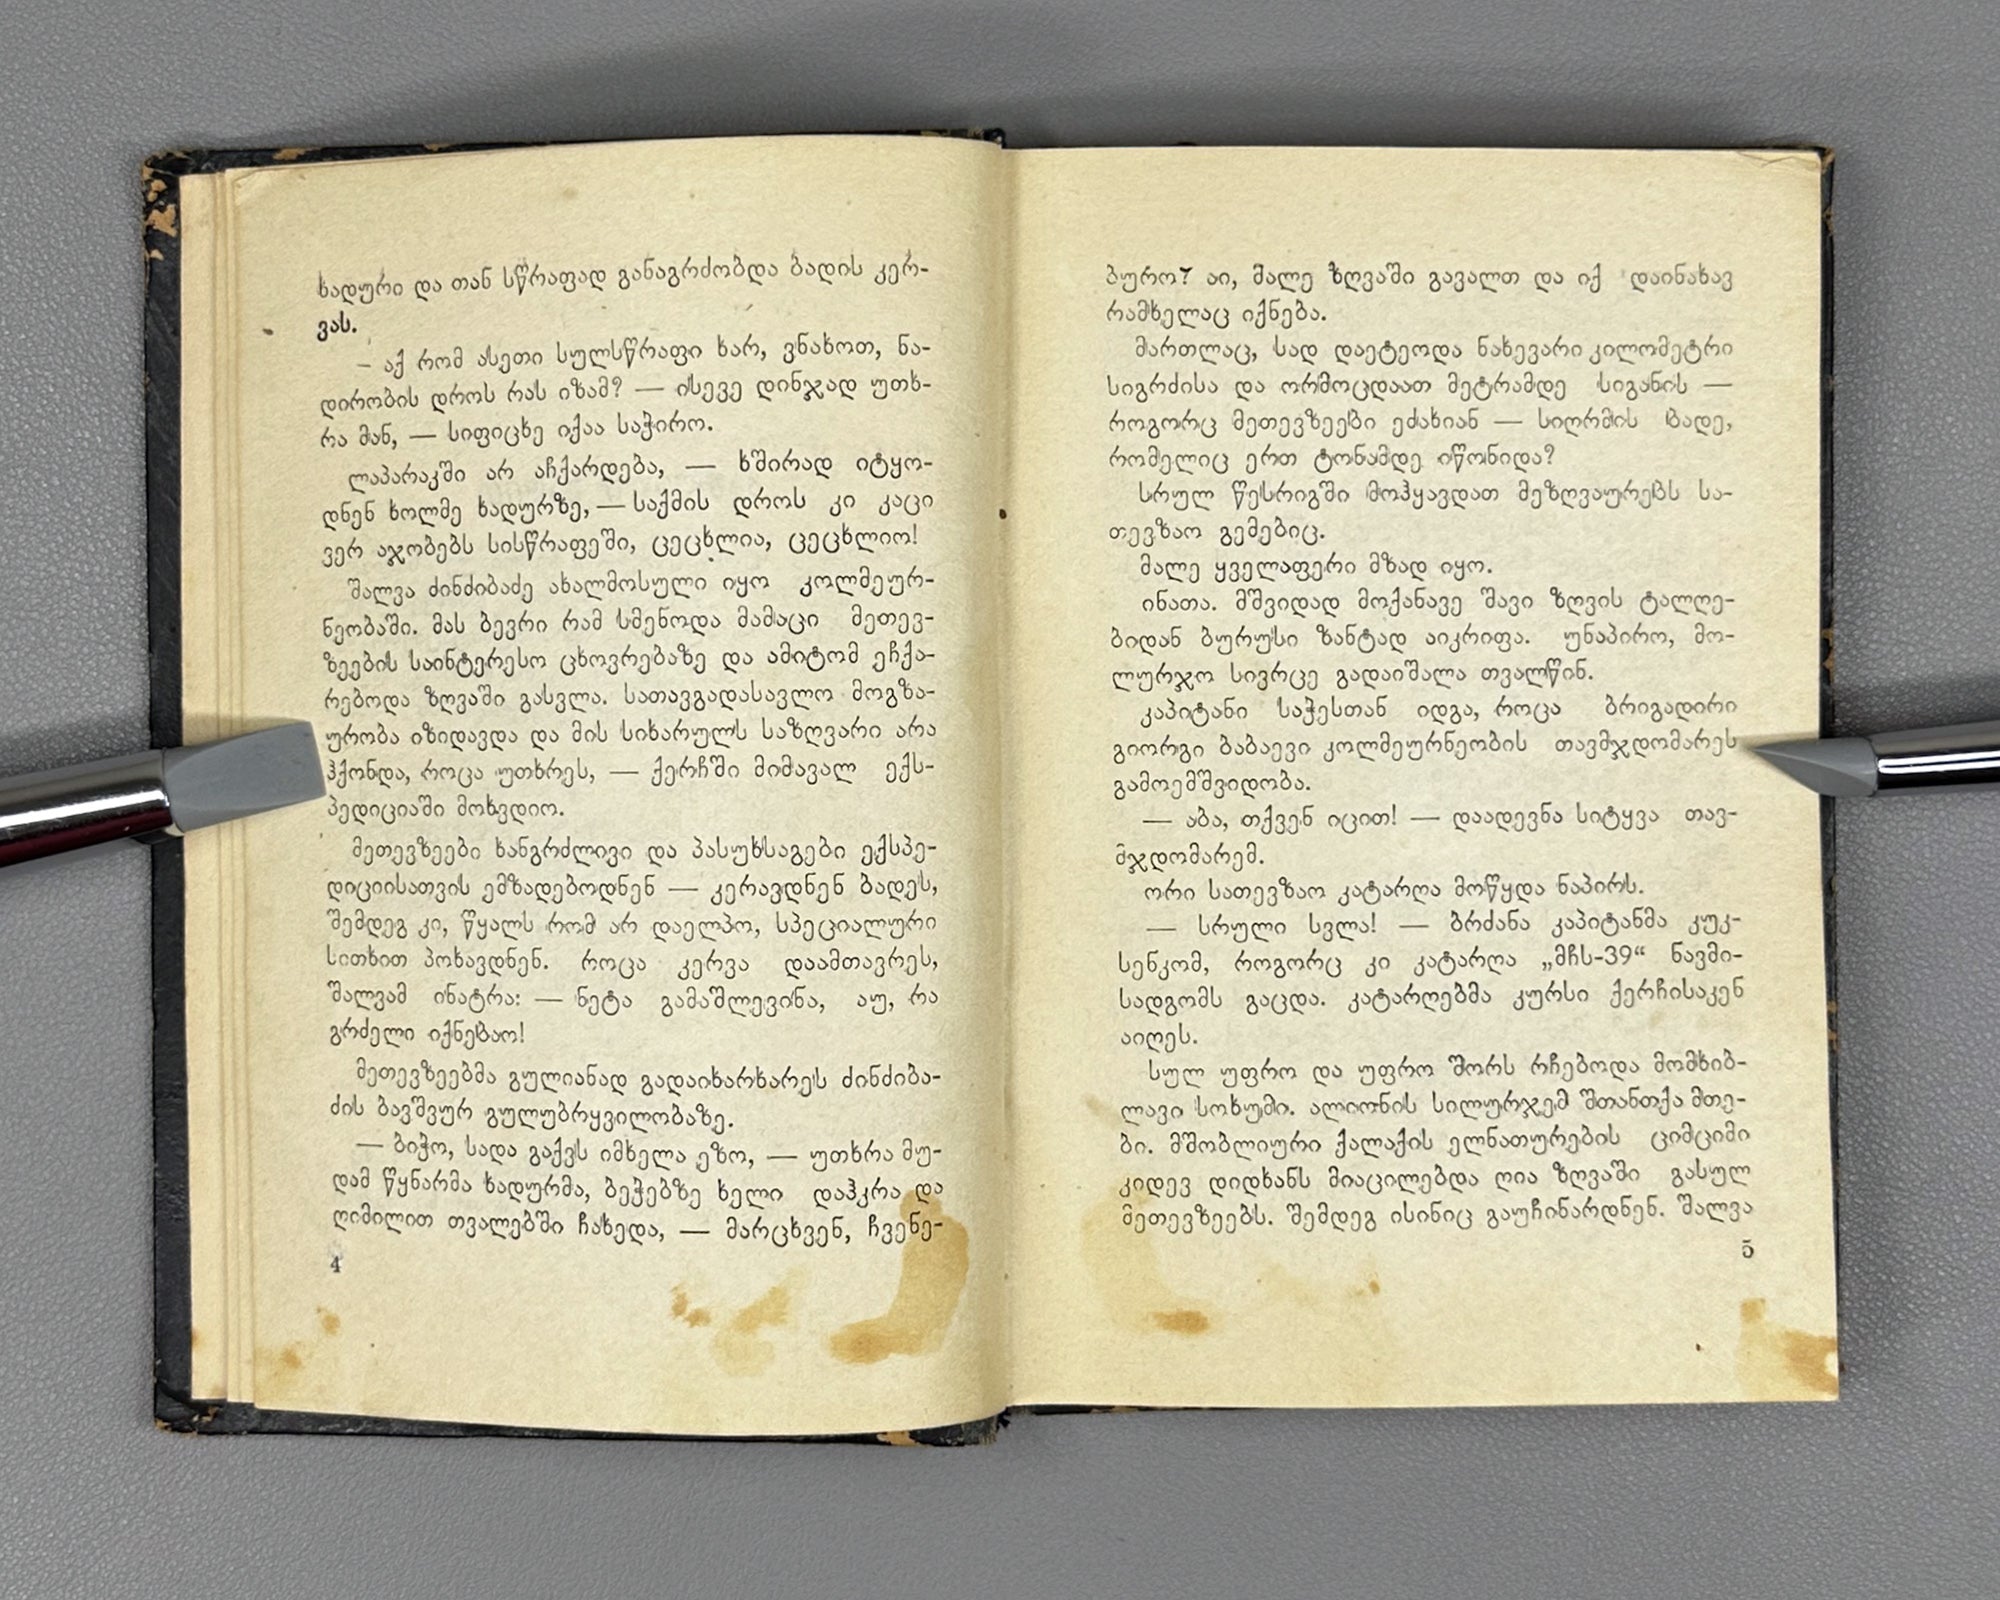 ხადური და თან სწრაფად განაგრძობდა ბადის კერ-
ვას.
– აქ რომ ასეთი სულსწრაფი ხარ, ვნახოთ, ნა-
დირობის დროს რას იზამ? — ისევე დინჯად უთხ-
რა მან, — სიფიცხე იქაა საჭირო.
ლაპარაკში არ აჩქარდება, — ხშირად იტყო-
დნენ ხოლმე ხადურზე, — საქმის დროს კი კაცი
ვერ აჯობებს სისწრაფეში, ცეცხლია, ცეცხლიო!
შალვა ძინძიბაძე ახალმოსული იყო კოლმეურ-
ნეობაში. მას ბევრი რამ სმენოდა მამაცი მეთევ-
ზეების საინტერესო ცხოვრებაზე და ამიტომ ეჩქა-
რებოდა ზღვაში გასვლა. სათავგადასავლო მოგზა-
ურობა იზიდავდა და მის სიხარულს საზღვარი არა
ჰქონდა, როცა უთხრეს, — ქერჩში მიმავალ ექს-
პედიციაში მოხვდიო.
მეთევზეები ხანგრძლივი და პასუხსაგები ექსპე-
დიციისათვის ემზადებოდნენ — კერავდნენ ბადეს,
შემდეგ კი, წყალს რომ არ დაელპო, სპეციალური
სითხით პოხავდნენ. როცა კერვა დაამთავრეს,
შალვამ ინატრა: — ნეტა გამაშლევინა, აუ, რა
გრძელი იქნებაო!
მეთევზეებმა გულიანად გადაიხარხარეს ძინძიბა-
ძის ბავშვურ გულუბრყვილობაზე.
— ბიჭო, სადა გაქვს იმხელა ეზო, — უთხრა მუ-
დამ წყნარმა ხადურმა, ბეჭებზე ხელი დაჰკრა და
ღიმილით თვალებში ჩახედა, — მარცხვენ, ჩვენე-
4
ბურო? აი, მალე ზღვაში გავალთ და იქ დაინახავ
რამხელაც იქნება.
მართლაც, სად დაეტეოდა ნახევარი კილომეტრი
სიგრძისა და ორმოცდაათ მეტრამდე სიგანის —
როგორც მეთევზეები ეძახიან — სიღრმის ბადე,
რომელიც ერთ ტონამდე იწონიდა?
სრულ წესრიგში მოჰყავდათ მეზღვაურებს სა-
თევზაო გემებიც.
მალე ყველაფერი მზად იყო.
ინათა. მშვიდად მოქანავე შავი ზღვის ტალღე-
ბიდან ბურუსი ზანტად აიკრიფა. უნაპირო, მო-
ლურჯო სივრცე გადაიშალა თვალწინ.
კაპიტანი საჭესთან იდგა, როცა ბრიგადირი
გიორგი ბაბაევი კოლმეურნეობის თავმჯდომარეს
გამოემშვიდობა.
— აბა, თქვენ იცით! — დაადევნა სიტყვა თავ-
მჯდომარემ.
ორი სათევზაო კატარღა მოწყდა ნაპირს.
— სრული სვლა! — ბრძანა კაპიტანმა კუკ-
სენკომ, როგორც კი კატარღა „მჩს-39“ ნავმი-
სადგომს გაცდა. კატარღებმა კურსი ქერჩისაკენ
აიღეს.
სულ უფრო და უფრო შორს რჩებოდა მომხიბ-
ლავი სოხუმი. ალიონის სილურჯემ შთანთქა მთე-
ბი. მშობლიური ქალაქის ელნათურების ციმციმი
კიდევ დიდხანს მიაცილებდა ღია ზღვაში გასულ
მეთევზეებს. შემდეგ ისინიც გაუჩინარდნენ. შალვა
5